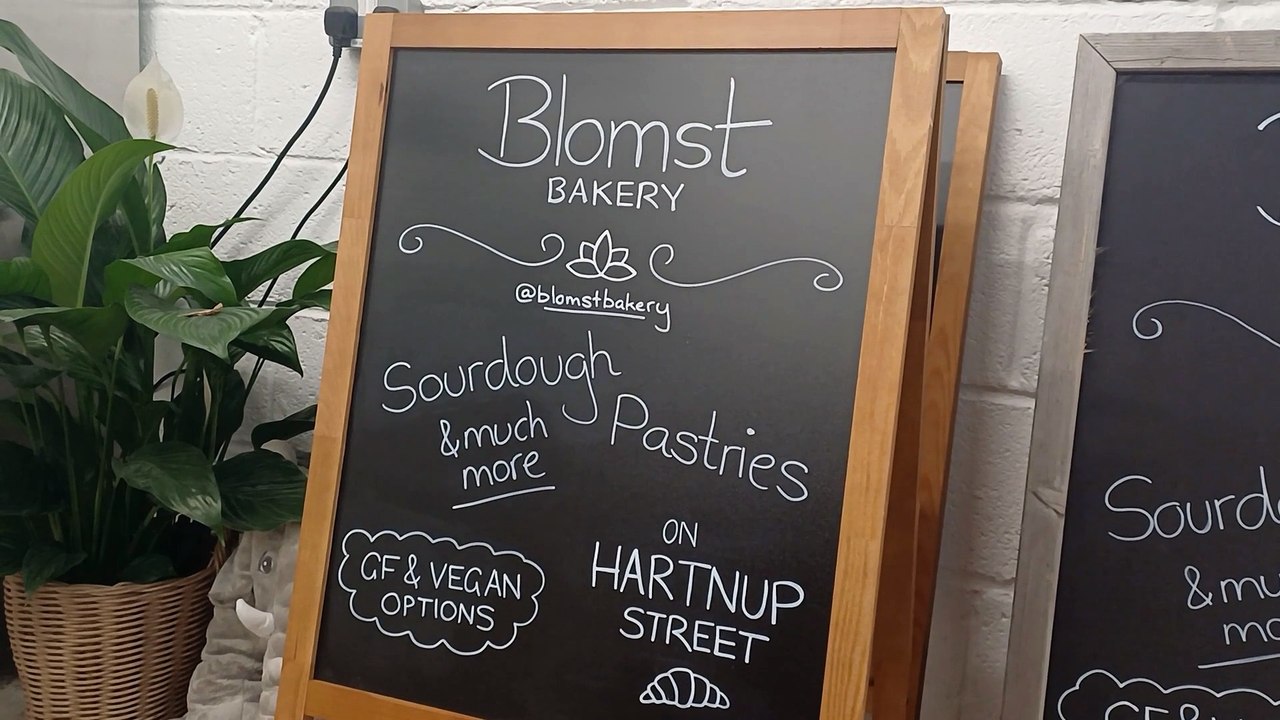 Blomst
BAKERY
@blomstbakery
Sourdough
Pastries
& much
more
ON
HARTNUP
STREET
GF & VEGAN
OPTIONS
Sourd
& mu
mo
GF &